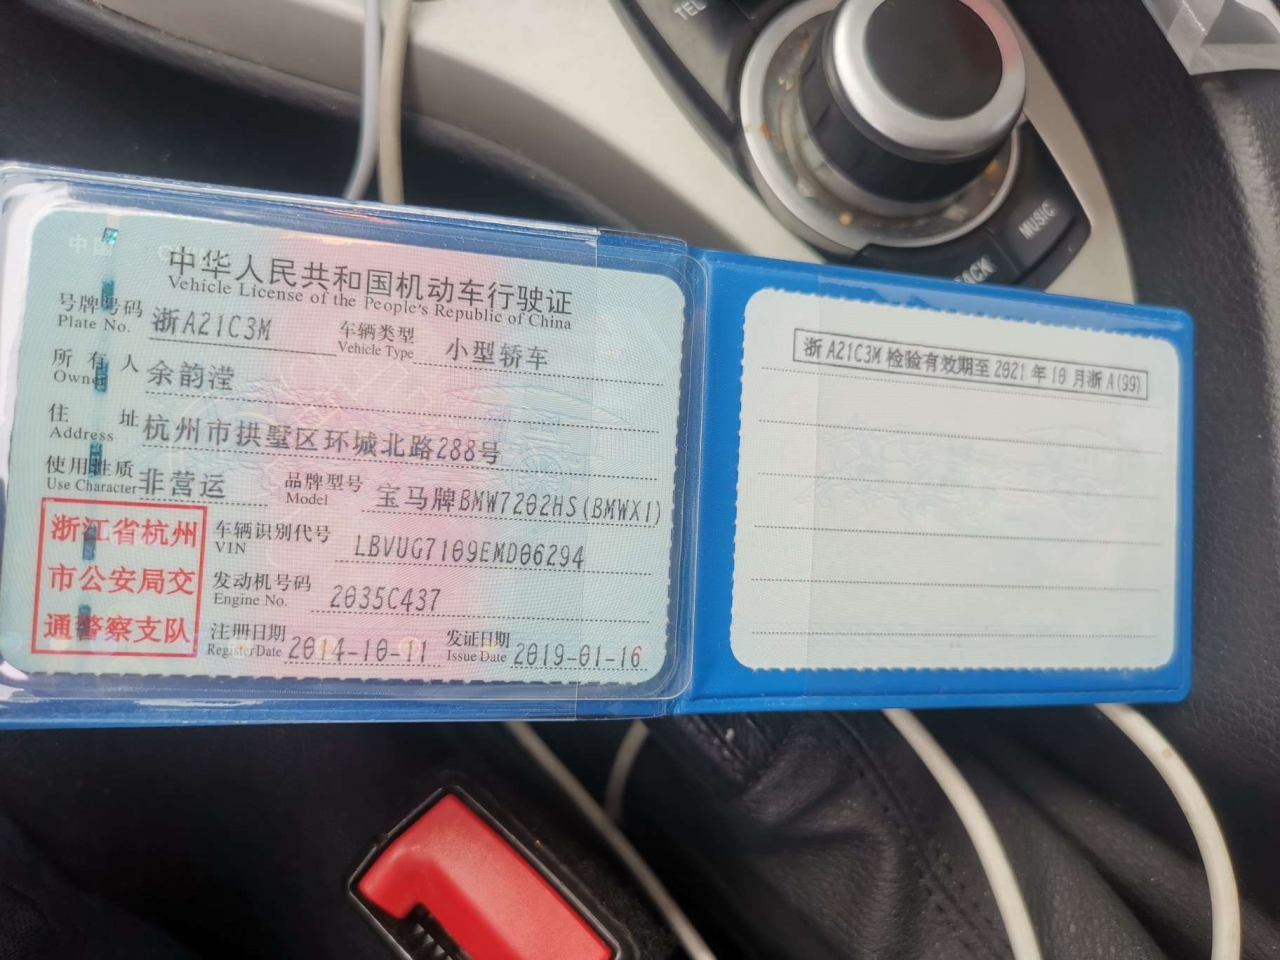 TEL
MUSIC
中国
中华人民共和国机动车行驶证
Vehicle License of the People's Republic of China
号牌号码 浙A21C3M 车辆类型 小型轿车
Plate No. Vehicle Type
所有人 余韵滢
Owner
住址 杭州市拱墅区环城北路288号
Address
使用性质 非营运 品牌型号 宝马牌BMW7202HS(BMWX1)
Use Character Model
浙江省杭州
市公安局交
通警察支队
车辆识别代号 LBVUG7109EMD06294
VIN
发动机号码 2035C437
Engine No.
注册日期 2014-10-11 发证日期 2019-01-16
Register Date Issue Date
浙A21C3M检验有效期至2021年10月浙A(99)